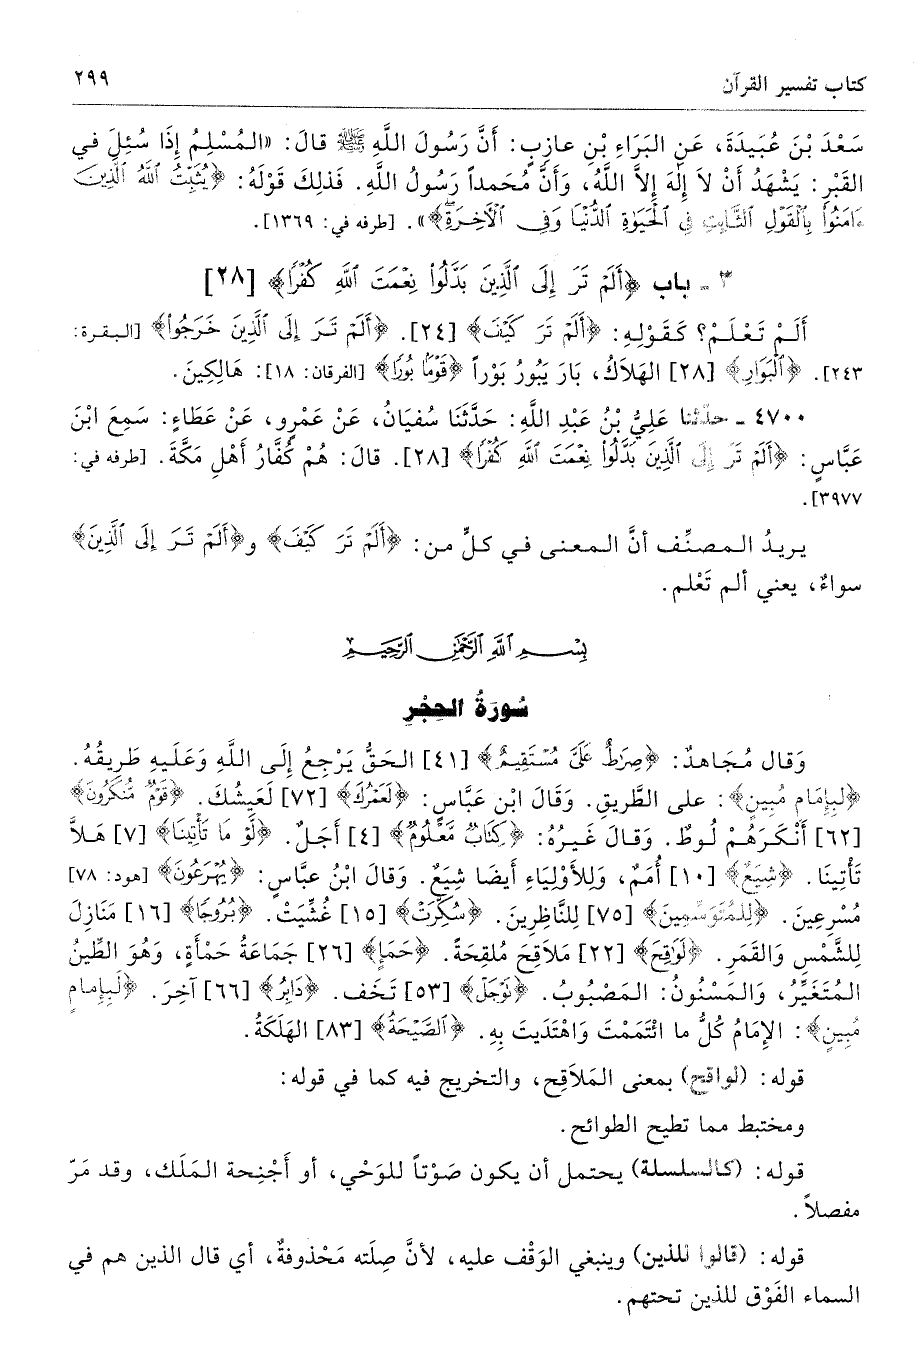 كتاب تفسير القرآن
٢٩٩
سَعْدَ بْنَ عُبَيدَةَ، عَنِ البَرَاءِ بْنِ عازِبٍ: أَنَّ رَسُولَ اللَّهِ ﷺ قالَ: «المُسْلِمُ إِذَا سُئِلَ في
القَبْرِ: يَشْهَدُ أَنْ لاَ إِلٰهَ إِلاَّ اللَّهُ، وَأَنَّ مُحَمداً رَسُولُ اللَّهِ. فَذلِكَ قَوْلهُ: ﴿يُثَبِّتُ ٱللَّهُ ٱلَّذِينَ
ءَامَنُوا۟ بِٱلْقَوْلِ ٱلثَّابِتِ فِي ٱلْحَيَوٰةِ ٱلدُّنْيَا وَفِي ٱلْآخِرَةِ﴾». [طرفه في: ١٣٦٩].
٣ - باب ﴿أَلَمْ تَرَ إِلَى ٱلَّذِينَ بَدَّلُوا۟ نِعْمَتَ ٱللَّهِ كُفْرًا﴾ [٢٨]
أَلَمْ تَعْلَمْ؟ كَقَوْلِهِ: ﴿أَلَمْ تَرَ كَيْفَ﴾ [٢٤]. ﴿أَلَمْ تَرَ إِلَى ٱلَّذِينَ خَرَجُوا۟﴾ [البقرة:
٢٤٣]. ﴿ٱلْبَوَارِ﴾ [٢٨] الهَلاَكُ، بَارَ يَبُورُ بَوْراً ﴿قَوْمًا بُورًا﴾ [الفرقان: ١٨]: هَالِكِينَ.
٤٧٠٠ - حدّثنا عَلِيُّ بْنُ عَبْدِ اللَّهِ: حَدَّثَنَا سُفيَانُ، عَنْ عَمْرِو، عَنْ عَطَاءٍ: سَمِعَ ابْنَ
عَبَّاسٍ: ﴿أَلَمْ تَرَ إِلَى ٱلَّذِينَ بَدَّلُوا۟ نِعْمَتَ ٱللَّهِ كُفْرًا﴾ [٢٨]. قالَ: هُمْ كُفَّارُ أَهْلِ مَكَّةَ. [طرفه في:
٣٩٧٧].
يريدُ المصنِّف أنَّ المعنى في كلٍّ من: ﴿أَلَمْ تَرَ كَيْفَ﴾ و﴿أَلَمْ تَرَ إِلَى ٱلَّذِينَ﴾
سواءٌ، يعني ألم تَعْلم.
بِسْمِ ٱللَّهِ ٱلرَّحْمَٰنِ ٱلرَّحِيمِ
سُورَةُ الحِجْرِ
وَقال مُجَاهدٌ: ﴿صِرَٰطٌ عَلَىَّ مُسْتَقِيمٌ﴾ [٤١] الحَقُّ يَرْجِعُ إِلَى اللَّهِ وَعَلَيهِ طَرِيقُهُ.
﴿لَبِإِمَامٍ مُبِينٍ﴾: على الطَّرِيقِ. وَقَالَ ابْن عَبَّاسٍ: ﴿لَعَمْرُكَ﴾ [٧٢] لَعَيشُكَ. ﴿قَوْمٌ مُّنكَرُونَ﴾
[٦٢] أَنْكَرَهُمْ لُوطٌ. وَقَالَ غَيرُهُ: ﴿كِتَابٌ مَّعْلُومٌ﴾ [٤] أَجَلٌ. ﴿لَّوْ مَا تَأْتِينَا﴾ [٧] هَلاَّ
تَأْتِينَا. ﴿شِيَعٌ﴾ [١٠] أُمَمٌ، وَلِلأَوْلِيَاءِ أَيضَا شِيَعٌ. وَقالَ ابْنُ عبَّاسٍ: ﴿يُهْرَعُونَ﴾ [هود: ٧٨]
مُسْرِعِينَ. ﴿لِلْمُتَوَسِّمِينَ﴾ [٧٥] لِلنَّاظِرِينَ. ﴿سُكِّرَتْ﴾ [١٥] غُشِّيَتْ. ﴿بُرُوجًا﴾ [١٦] مَنَازِلَ
لِلشَّمْسِ وَالقَمَرِ. ﴿لَوَٰقِحَ﴾ [٢٢] مَلاَقِحَ مُلقِحَةً. ﴿حَمَإٍ﴾ [٢٦] جَمَاعَةُ حَمْأَةٍ، وَهُوَ الطِّينُ
المُتَغَيِّرُ، وَالمَسْنُونُ: المَصْبُوبُ. ﴿تَوْجَلْ﴾ [٥٣] تَخَف. ﴿دَابِرَ﴾ [٦٦] آخِرَ. ﴿لَبِإِمَامٍ
مُبِينٍ﴾: الإِمَامُ كُلُّ ما ائْتَمَمْتَ وَاهْتَدَيتَ بِهِ. ﴿ٱلصَّيْحَةُ﴾ [٨٣] الهَلَكَةُ.
قوله: (لواقح) بمعنى المَلاَقِح، والتخريج فيه كما في قوله:
ومختبط مما تطيح الطوائح.
قوله: (كالسلسلة) يحتمل أن يكون صَوْتاً للوَحْي، أو أَجْنِحة المَلَك، وقد مَرّ
مفصلاً.
قوله: (قالوا للذين) وينبغي الوَقْف عليه، لأنَّ صِلَته مَحْذوفةٌ، أي قال الذين هم في
السماء الفَوْق للذين تحتهم.